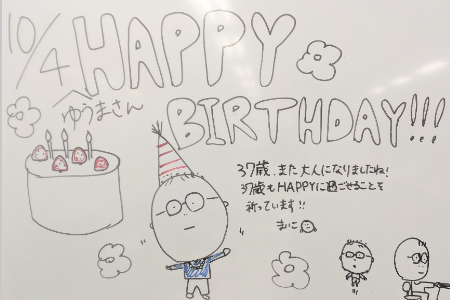 10/4 HAPPY
ゆうまさん
BIRTHDAY!!!
37歳、また大人になりましたね!
37歳もHAPPYに過ごせることを
祈っています!!
まいこ